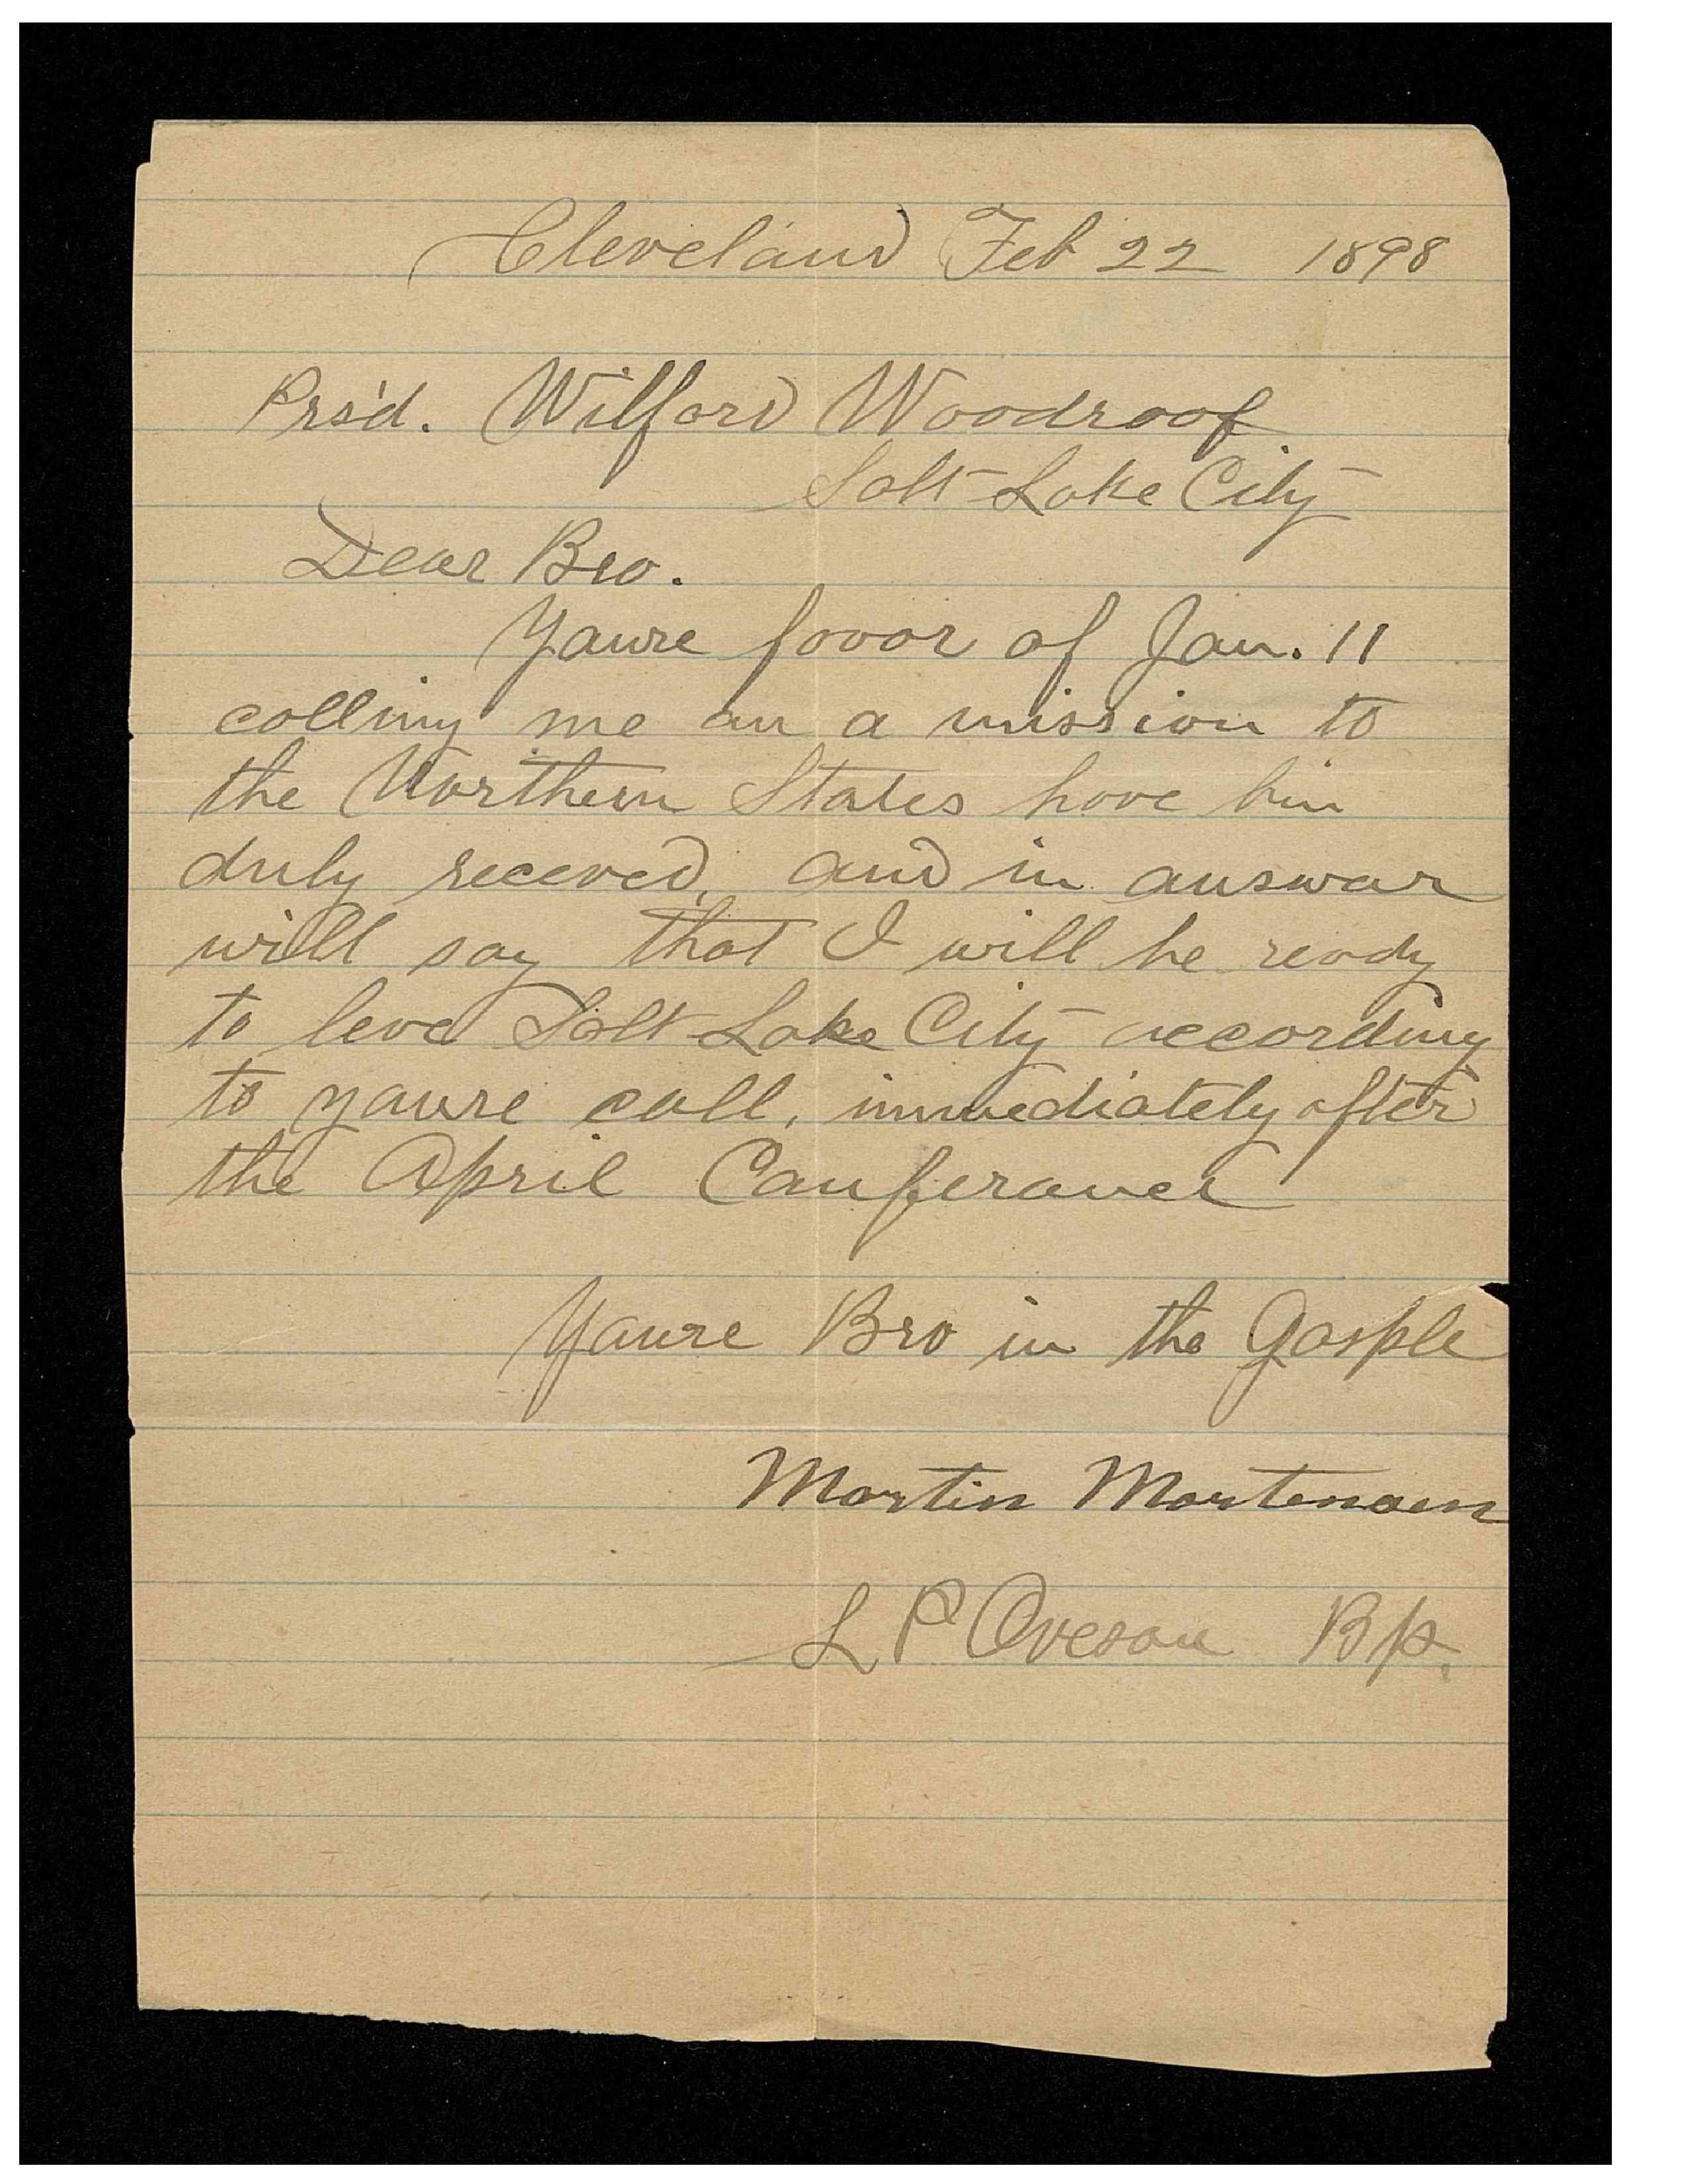 Cleveland Feb 22 1898
Prsd. Wilford Woodroof
Salt Lake City
Dear Bro.
Youre favor of Jan. 11
calling me on a mission to
the Northern States have bin
duly receved, and in answar
will say that I will be ready
to leve Salt Lake City according
to youre call, immediately after
the April Conferance
Youre Bro in the Gosple
Martin Mortensen
L P Oveson Bp.